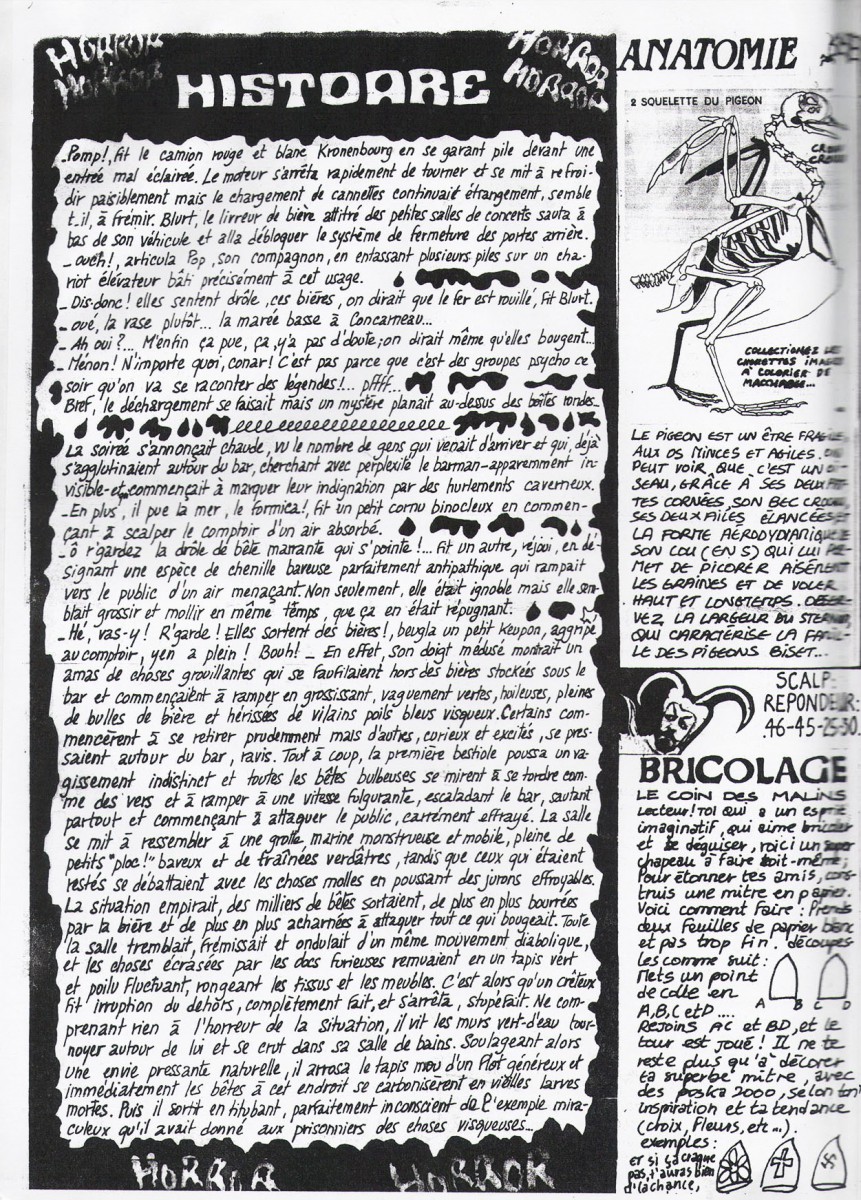 HORROR
HORROR
HORROR
HORROR
HISTOARE
_Pomp!, fit le camion rouge et blanc Kronenbourg en se garant pile devant une
entrée mal éclairée. Le moteur s'arrêta rapidement de tourner et se mit à refroi-
dir paisiblement mais le chargement de cannettes continuait étrangement, semble
t_il, à frémir. Blurt, le livreur de bière attitré des petites salles de concerts sauta à
bas de son véhicule et alla débloquer le système de fermeture des portes arrière.
_ ouch!, articula Pop, son compagnon, en entassant plusieurs piles sur un cha-
riot élévateur bâti précisément à cet usage.
_ Dis-donc! elles sentent drôle, ces bières, on dirait que le fer est rouillé, fit Blurt.
_ oué, la vase plutôt... la marée basse à Concarneau...
_ Ah oui?... M'enfin ça pue, ça, y'a pas d'doute; on dirait même qu'elles bougent...
_ Ménon! N'importe quoi, conar! C'est pas parce que c'est des groupes psycho ce
soir qu'on va se raconter des legendes!... pffff...
Bref, le déchargement se faisait mais un mystère planait au-dessus des boîtes rondes_
La soirée s'annonçait chaude, vu le nombre de gens qui venait d'arriver et qui, déjà
s'agglutinaient autour du bar, cherchant avec perplexité le barman-apparemment in-
visible-et commençait à marquer leur indignation par des hurlements caverneux.
_En plus, il pue la mer, le formica!, fit un petit cornu binocleux en commen-
çant à scalper le comptoir d'un air absorbé.
_ ô r'gardez la drôle de bête marrante qui s'pointe!... fit un autre, réjoui, en dé-
signant une espèce de chenille baveuse parfaitement antipathique qui rampait
vers le public d'un air menaçant. Non seulement, elle était ignoble mais elle sem-
blait grossir et mollir en même temps, que ça en était répugnant.
_Hé, vas-y! R'garde! Elles sortent des bières!, beugla un petit keupon, aggripé
au comptoir, yen a plein! Bouh! _ En effet, son doigt médusé montrait un
amas de choses grouillantes qui se faufilaient hors des bières stockées sous le
bar et commençaient à ramper en grossissant, vaguement vertes, huileuses, pleines
de bulles de bière et hérissées de vilains poils bleus visqueux. Certains com-
mencèrent à se retirer prudemment mais d'autres, curieux et excités, se pres-
saient autour du bar, ravis. Tout à coup, la première bestiole poussa un va-
gissement indistinct et toutes les bêtes bulbeuses se mirent à se tordre com-
me des vers et à ramper à une vitesse fulgurante, escaladant le bar, sautant
partout et commençant à attaquer le public, carrément effrayé. La salle
se mit à ressembler à une grotte marine monstrueuse et mobile, pleine de
petits "ploc!" baveux et de traînées verdâtres, tandis que ceux qui étaient
restés se débattaient avec les choses molles en poussant des jurons effroyables.
La situation empirait, des milliers de bêtes sortaient, de plus en plus bourrées
par la bière et de plus en plus acharnées à attaquer tout ce qui bougeait. Toute
la salle tremblait, frémissait et ondulait d'un même mouvement diabolique,
et les choses écrasées par les docs furieuses remuaient en un tapis vert
et poilu fluctuant, rongeant les tissus et les meubles. C'est alors qu'un crêteux
fit irruption du dehors, complètement fait, et s'arrêta, stupéfait. Ne com-
prenant rien à l'horreur de la situation, il vit les murs vert-d'eau tour-
noyer autour de lui et se crut dans sa salle de bains. Soulageant alors
une envie pressante naturelle, il arrosa le tapis mou d'un flot généreux et
immédiatement les bêtes à cet endroit se carbonisèrent en vieilles larves
mortes. Puis il sortit en titubant, parfaitement inconscient de l'exemple mira-
culeux qu'il avait donné aux prisonniers des choses visqueuses...
HORROR
HORROR
ANATOMIE
2 SQUELETTE DU PIGEON
COLLECTIONEZ
CHOUETTES
À COLORIER DE
MACCHABEE...
LE PIGEON EST UN ÊTRE
AUX OS MINCES ET AGILES.
PEUT VOIR, QUE C'EST UN
SEAU, GRÂCE À SES DEUX
TES CORNÉES, SON BEC
SES DEUX AILES ÉLANCÉES
LA FORME AÉRODYDIARIQUE
SON COU (EN S) QUI LUI
MET DE PICORER AISÉMENT
LES GRAINES ET DE VOLER
HAUT ET LONGTEMPS.
VEZ, LA LARGEUR DU
QUI CARACTÉRISE LA
LE DES PIGEONS BISET...
SCALP
REPONDEUR:
46-45-25-30.
BRICOLAGE
LE COIN DES MALINS
Lecteur! Toi qui a un esprit
imaginatif, qui aime bricoler
et se déguiser, voici un super
chapeau à faire soit-même;
Pour étonner tes amis, cons-
truis une mitre en papier.
Voici comment faire: Prends
deux feuilles de papier blanc
et pas trop fin. découpes
les comme suit:
Mets un point
de colle en
A B C D
A,B,C et D....
Rejoins AC et BD, et le
tour est joué! Il ne te
reste plus qu'à décorer
ta superbe mitre, avec
des poska 2000, selon ton
inspiration et ta tendance
(choix, fleurs, etc...).
exemples:
et si ça craque
pas, t'auras bien
d'la chance,